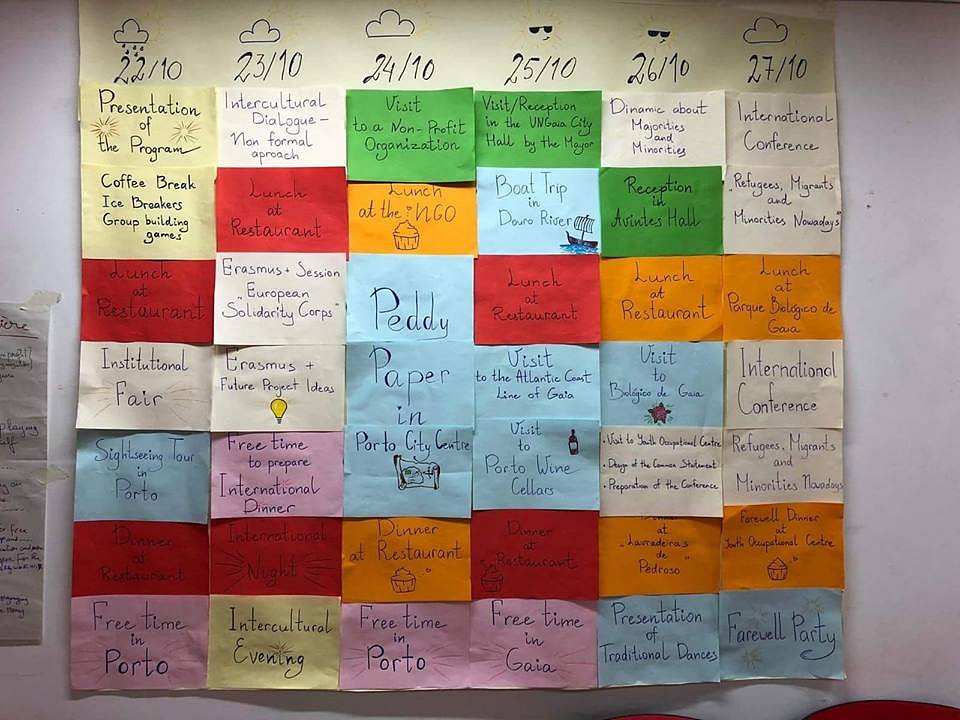 22/10
23/10
24/10
25/10
26/10
27/10
Presentation
of
the Program
Intercultural
Dialogue –
Non formal
aproach
Visit
to a Non-Profit
Organization
Visit/Reception
in the UNGaia City
Hall by the Mayor
Dinamic about
Majorities
and
Minorities
International
Conference
Coffee Break
Ice Breakers
Group building
games
Lunch
at
Restaurant
Lunch
at the NGO
Boat Trip
in
Douro River
Reception
in
Avintes Hall
"Refugees, Migrants
and
Minorities Nowadays"
Lunch
at
Restaurant
Erasmus+ Session
European
"Solidarity Corps"
Peddy
Lunch
at
Restaurant
Lunch
at
Restaurant
Lunch
at
Parque Biológico de
Gaia
Institutional
Fair
Erasmus +
Future Project Ideas
Paper
in
Visit
to the Atlantic Coast
Line of Gaia
Visit
to
Biológico de Gaia
International
Conference
Sightseeing Tour
in
Porto
Free time
to prepare
International
Dinner
Porto City Centre
Visit
to
Porto Wine
Cellars
• Visit to Youth Occupational Centre
• Design of the Common Statement
• Preparation of the Conference
Refugees, Migrants
and
Minorities Nowadays
Dinner
at
Restaurant
International
Night
Dinner
at Restaurant
Dinner
at
Restaurant
Dinner
at
"Lavradeiras
de
Pedroso"
Farewell Dinner
at
Youth Occupational Centre
Free time
in
Porto
Intercultural
Evening
Free time
in
Porto
Free time
in
Gaia
Presentation
of
Traditional Dances
Farewell Party
playing